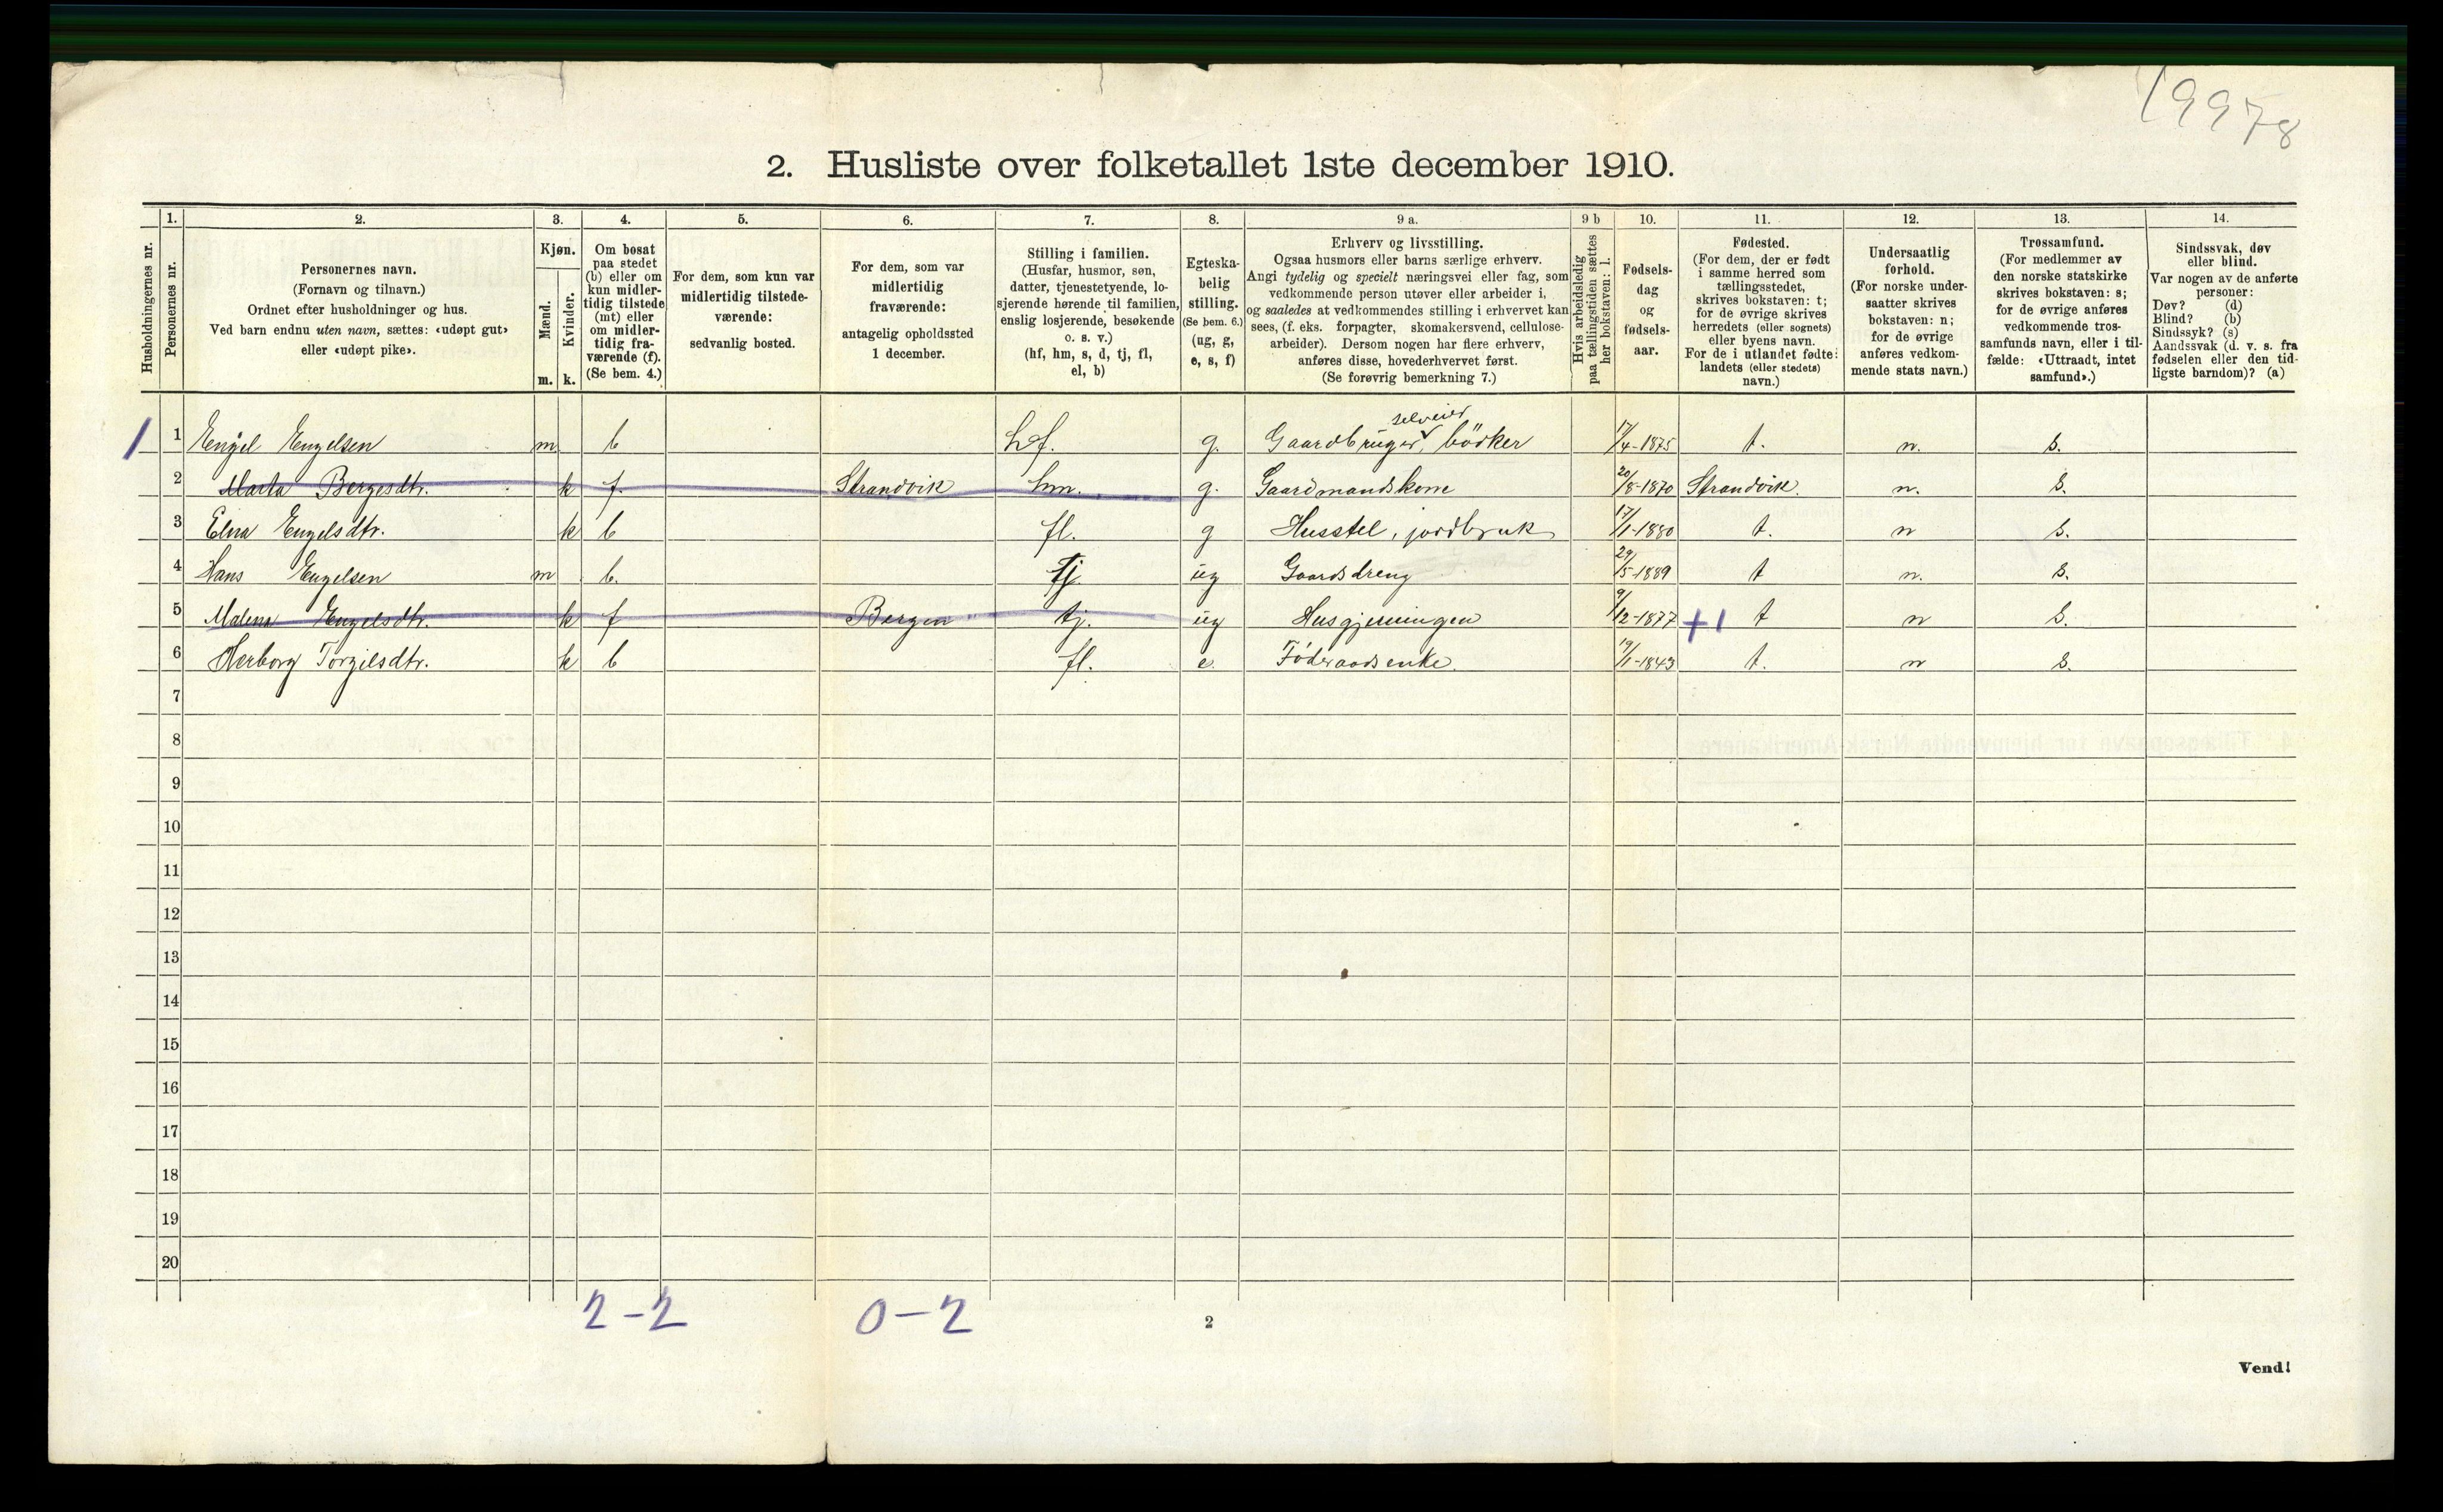 19978
2. Husliste over folketallet 1ste december 1910.
Husholdningernes nr.
1. Personernes nr.
2. Personernes navn. (Fornavn og tilnavn.) Ordnet efter husholdninger og hus. Ved barn endnu uten navn, sættes: «udøpt gut» eller «udøpt pike».
3. Kjøn. Mænd. m. Kvinder. k.
4. Om bosat paa stedet (b) eller om kun midlertidig tilstede (mt) eller om midlertidig fraværende (f). (Se bem. 4.)
5. For dem, som kun var midlertidig tilstedeværende: sedvanlig bosted.
6. For dem, som var midlertidig fraværende: antagelig opholdssted 1 december.
7. Stilling i familien. (Husfar, husmor, søn, datter, tjenestetyende, losjerende hørende til familien, enslig losjerende, besøkende o. s. v.) (hf, hm, s, d, tj, fl, el, b)
8. Egteskabelig stilling. (Se bem. 6.) (ug, g, e, s, f)
9 a. Erhverv og livsstilling. Ogsaa husmors eller barns særlige erhverv. Angi tydelig og specielt næringsvei eller fag, som vedkommende person utøver eller arbeider i, og saaledes at vedkommendes stilling i erhvervet kan sees, (f. eks. forpagter, skomakersvend, cellulosearbeider). Dersom nogen har flere erhverv, anføres disse, hovederhvervet først. (Se forøvrig bemerkning 7.)
9 b Hvis arbeidsledig paa tællingstiden sættes her bokstaven: l.
10. Fødselsdag og fødselsaar.
11. Fødested. (For dem, der er født i samme herred som tællingsstedet, skrives bokstaven: t; for de øvrige skrives herredets (eller sognets) eller byens navn. For de i utlandet fødte: landets (eller stedets) navn.)
12. Undersaatlig forhold. (For norske undersaatter skrives bokstaven: n; for de øvrige anføres vedkommende stats navn.)
13. Trossamfund. (For medlemmer av den norske statskirke skrives bokstaven: s; for de øvrige anføres vedkommende trossamfunds navn, eller i tilfælde: «Uttraadt, intet samfund».)
14. Sindssvak, døv eller blind. Var nogen av de anførte personer: Døv? (d) Blind? (b) Sindssyk? (s) Aandssvak (d. v. s. fra fødselen eller den tidligste barndom)? (a)
selveier
1 1 Engel Engelsen m b hf. g. Gaardbruger, bödker 17/4-1875 t. n. s.
2 Marta Bergesdtr. k f. Strandvik hm. g. Gaardmandskone 20/8-1870 Strandvik. n. s.
3 Elna Engelsdtr. k b fl. g Husstel, jordbruk 17/1-1880 t. n s.
4 Hans Engelsen m b. tj ug Gaardsdreng 29/5-1889 t n. s.
5 Malena Engelsdtr. k f Bergen tj. ug Husgjerningen 9/12-1877 +1 t n s.
6 Herborg Torgilsdtr. k b fl. e. Föderaadsenke. 19/1-1843 t. n s.
7
8
9
10
11
12
13
14
15
16
17
18
19
20
2-2 0-2
2
Vend!